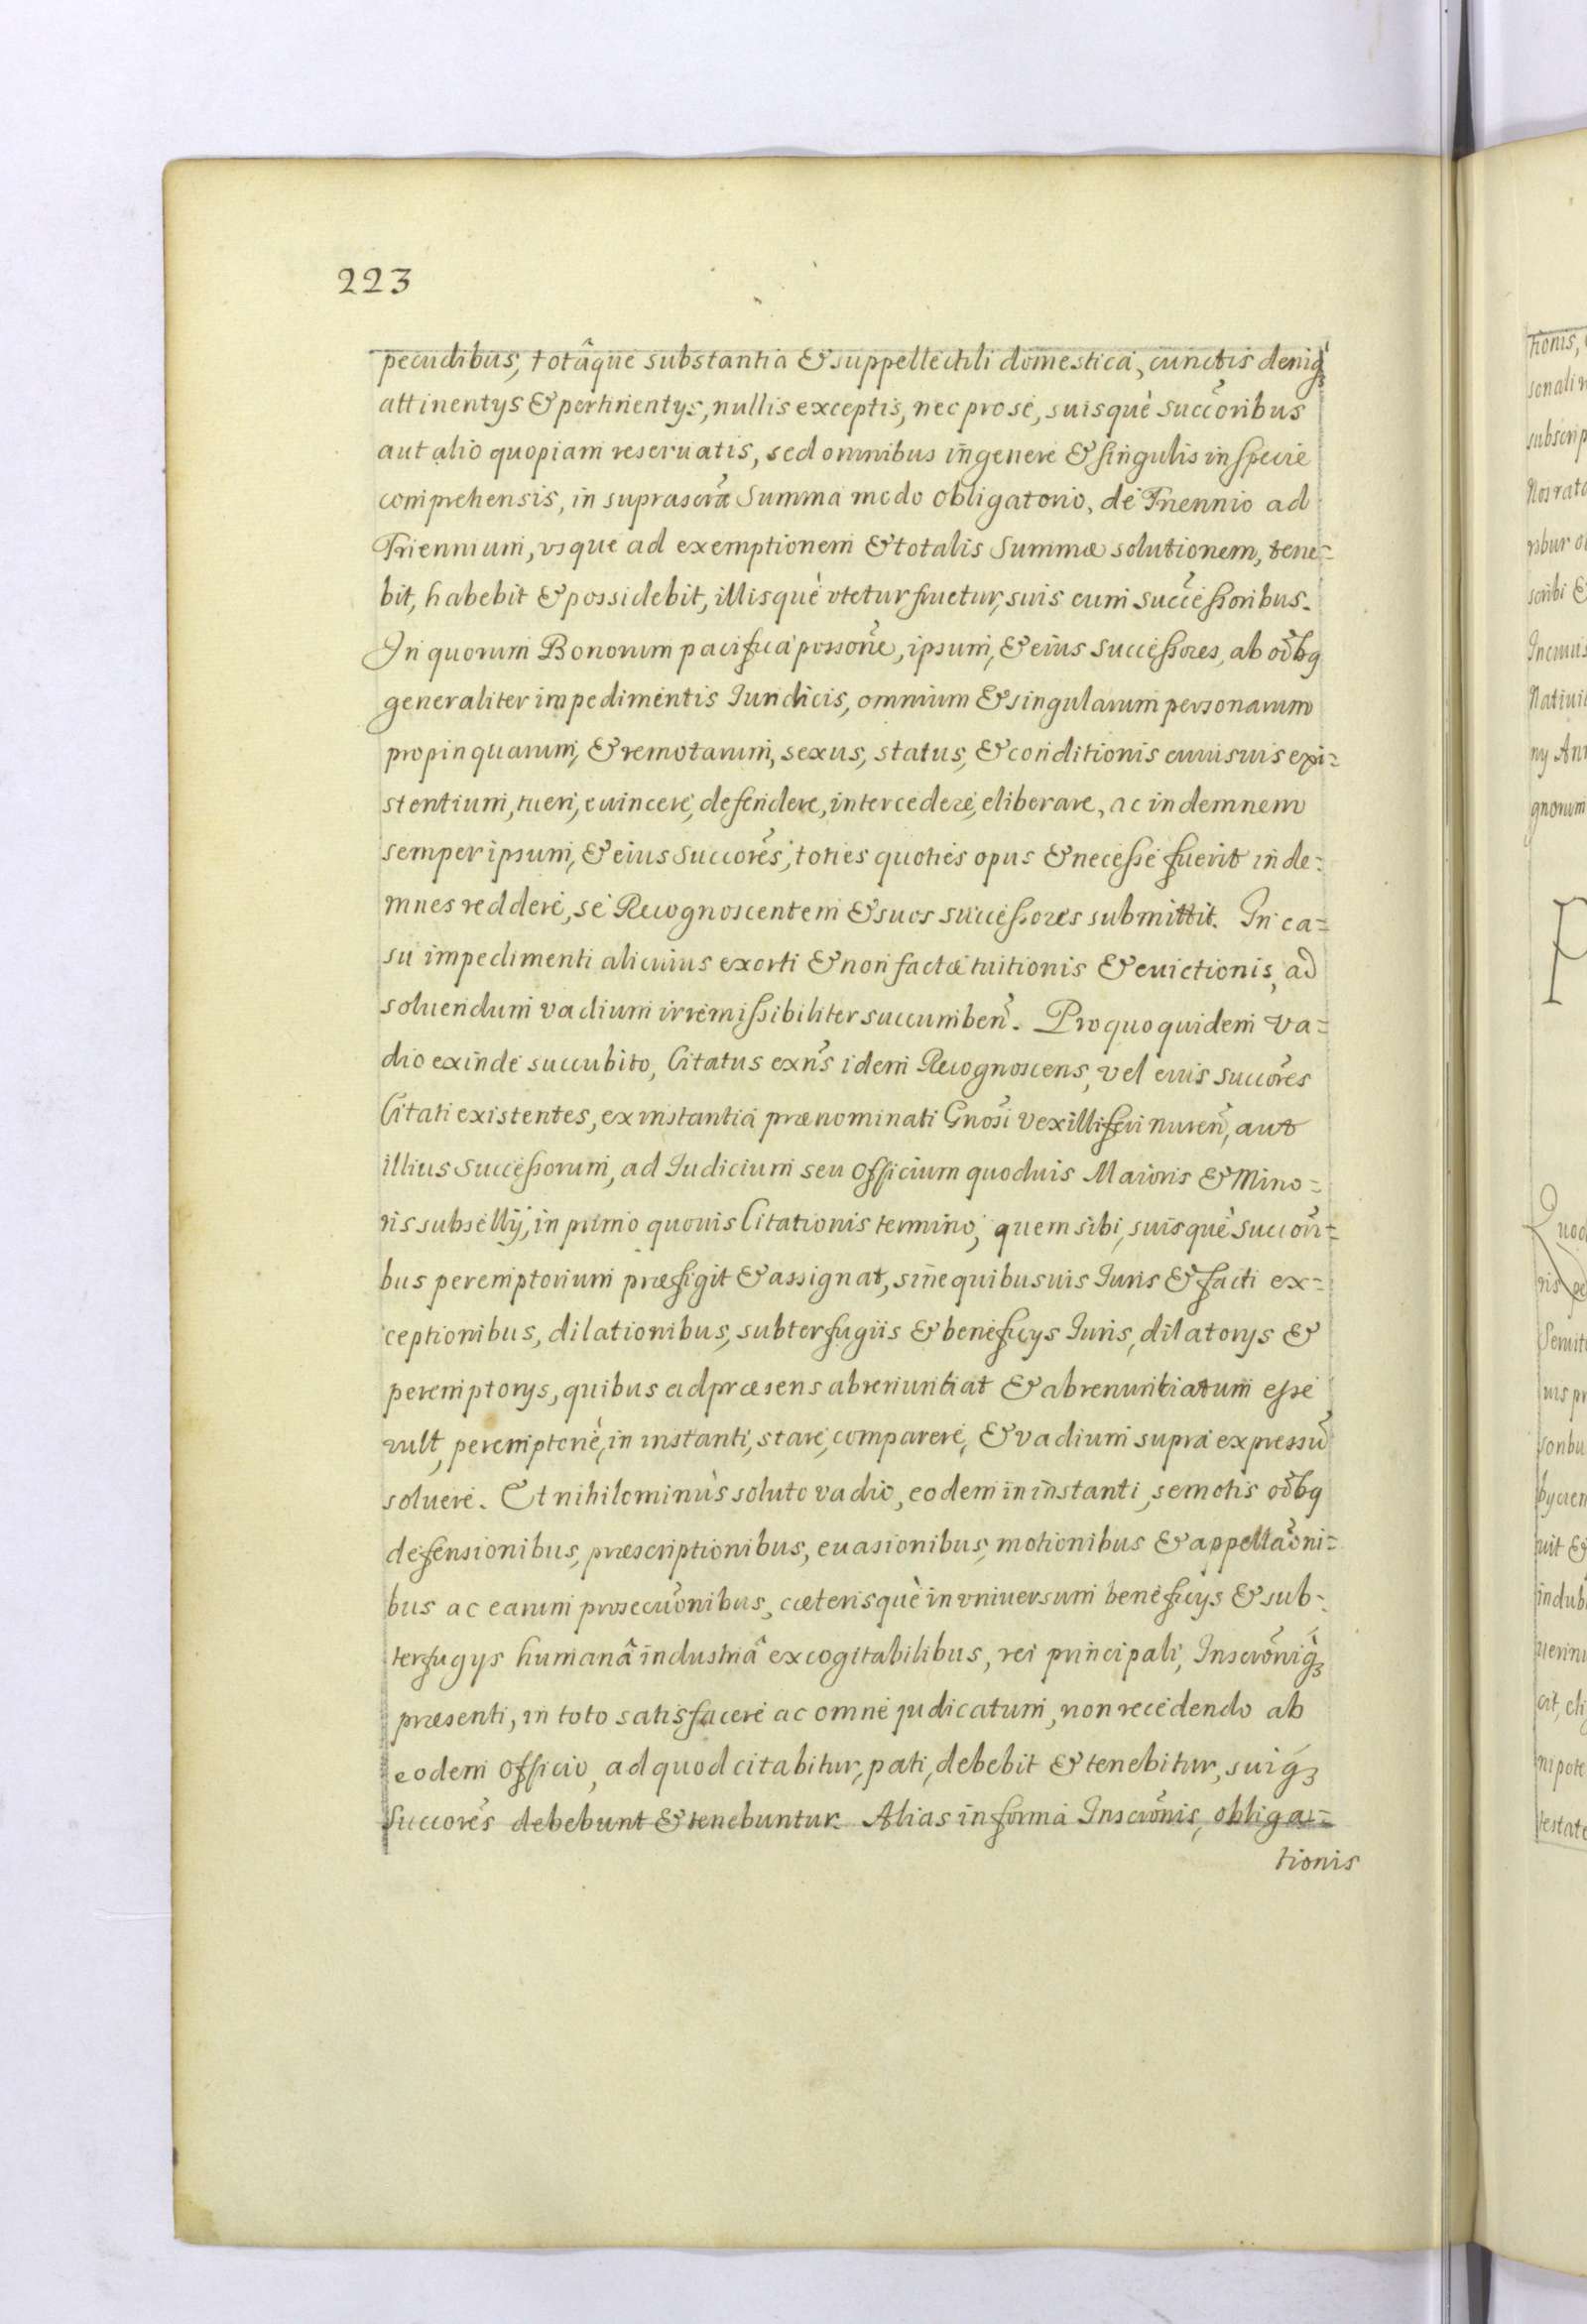 223
pecudibus, totâque substantia & suppellectili domestica, cunctis deniq́ꝫ
attinentys & pertinentys, nullis exceptis, nec pro se, suisquè succoribus
aut alio quopiam reseruatis, sed omnibus in genere & singulis in specie
comprehensis, in suprascrã Summa modo obligatorio, de Triennio ad
Triennium, vsque ad exemptionem & totalis Summæ solutionem, tene=
bit, habebit & possidebit, illisquè vtetur fruetur, suis cum successoribus.
In quorum Bonorum pacifica possone, ipsum, & eius successores, ab oĩbꝫ
generaliter impedimentis Iuridicis, omnium & singularum personarum
propinquarum, & remotarum, sexus, status, & conditionis cuiusuis exi=
stentium, tueri, euincere, defendere, intercedere, eliberare, ac indemnem
semper ipsum, & eius succores, toties quoties opus & necesse fuerit inde=
mnes reddere, se Recognoscentem & suos successores submittit. In ca=
su impedimenti alicuius exorti & non factæ tuitionis & euictionis, ad
soluendum vadium irremissibiliter succumben̉. Pro quo quidem va=
dio exinde succubito, Citatus exñs idem Recognoscens, vel eius succores
Citati existentes, ex instantia prænominati Gnosi Vexilliferi nuren̉, aut
illius Successorum, ad Iudicium seu Officium quoduis Maioris & Mino=
ris subsellij, in primo quouis Citationis termino, quem sibi, suisquè succori=
bus peremptorium præfigit & assignat, sine quibusuis Iuris & facti ex=
ceptionibus, dilationibus, subterfugiis & beneficys Iuris, dilatorys &
peremptorys, quibus ad præsens abrenuntiat & abrenuntiatum esse
vult, peremptoriè, in instanti, stare, comparere, & vadium supra expressũ
soluere. Et nihilominùs soluto vadio, eodem in instanti, semotis oĩbꝫ
defensionibus, præscriptionibus, euasionibus, motionibus & appellaoni=
bus ac earum prosecuonibus, cæterisquè in vniuersum beneficys & sub=
terfugys humanâ industriâ excogitabilibus, rei principali, Inscroniq́ꝫ
præsenti, in toto satisfacere ac omne judicatum, non recedendo ab
eodem Officio, ad quod citabitur, pati, debebit & tenebitur, suiq́ꝫ
Succores debebunt & tenebuntur. Alias in forma Inscronis, obliga=
tionis